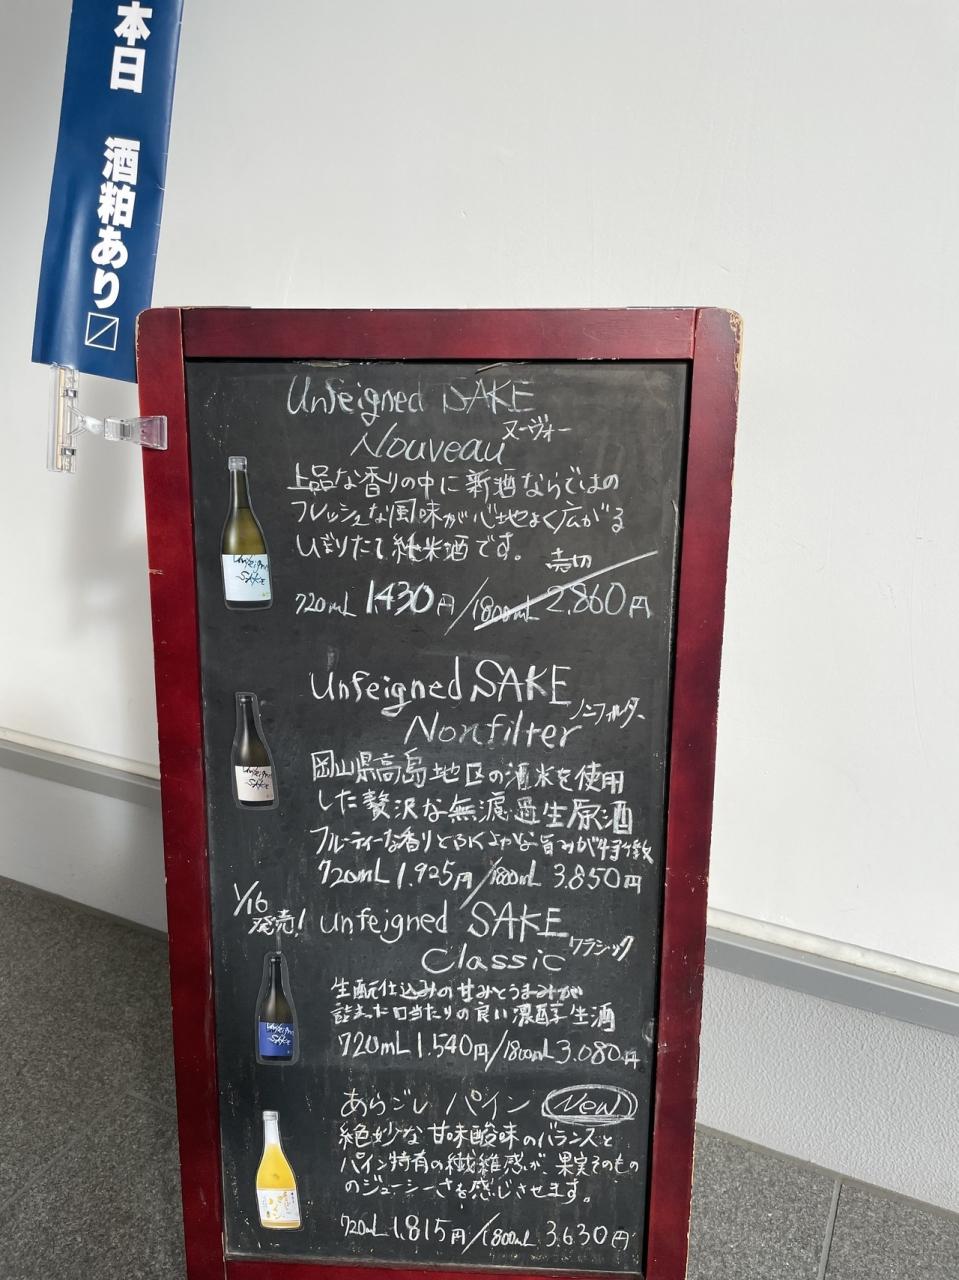 本日 酒粕あり
Unfeigned SAKE
Nouveau ヌーヴォー
上品な香りの中に新酒ならではの
フレッシュな風味が心地よく広がる
しぼりたて純米酒です。
売切
720mL 1430円/1800mL 2,860円
Unfeigned SAKE
Nonfilter ノンフィルター
岡山県高島地区の酒米を使用
した贅沢な無濾過生原酒
フルーティーな香りとふくよかな旨みが特徴
720mL 1.925円/1800mL 3.850円
1/16
発売!
Unfeigned SAKE
Classic クラシック
生酛仕込みの甘みとうまみが
詰まった口当たりの良い濃醇生酒
720mL 1.540円/1800mL 3.080円
あらごし パイン New
絶妙な甘味酸味のバランスと
パイン特有の繊維感が、果実そのもの
のジューシーさを感じさせます。
720mL 1.815円/1800mL 3.630円